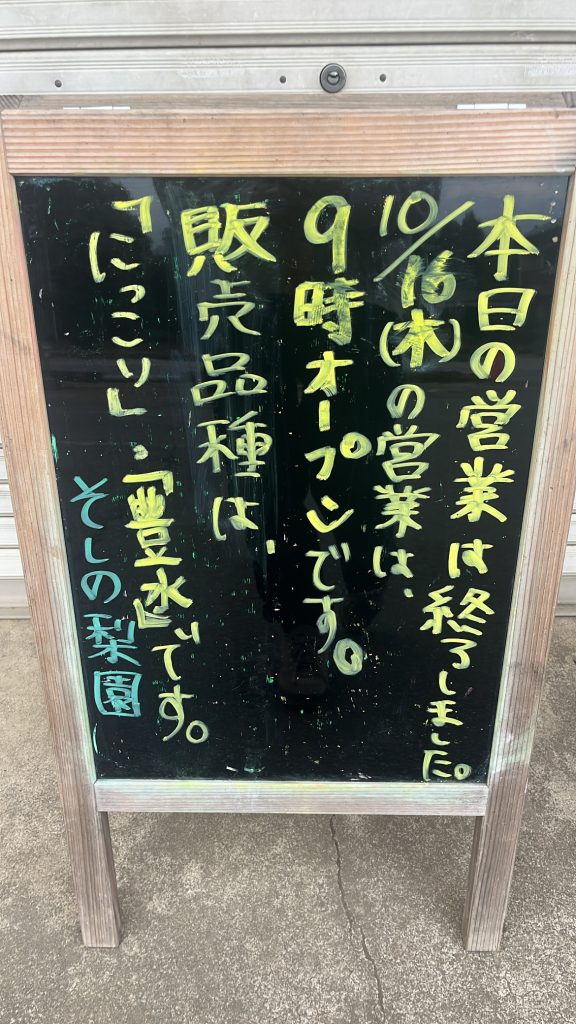 本日の営業は終了しました。
10/16(木)の営業は、
9時オープンです。
販売品種は、
「にっこり」・「豊水」です。
そしの梨園